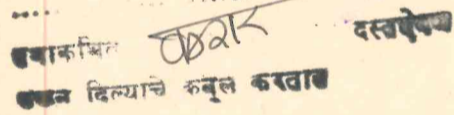 तथाकथित करार दस्तऐवज
करुन दिल्याचे कबूल करतात